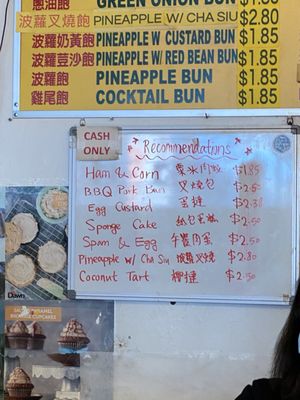 蔥油飽 GREEN ONION BUN $1.85
波蘿叉燒飽 PINEAPPLE W/ CHA SIU $2.80
波蘿奶黃飽 PINEAPPLE W CUSTARD BUN $1.85
波蘿荳沙飽 PINEAPPLE W/ RED BEAN BUN $1.85
波蘿飽 PINEAPPLE BUN $1.85
雞尾飽 COCKTAIL BUN $1.85
CASH ONLY
Recommendations
Ham & Corn 粟米肉飽 $1.85
BBQ Pork Bun 叉燒飽 $2.50
Egg Custard 蛋撻 $2.30
Sponge Cake 紙包蛋糕 $2.50
Spam & Egg 午餐肉蛋 $2.50
Pineapple w/ Cha Siu 波蘿叉燒 $2.80
Coconut Tart 椰撻 $2.50
Dawn
CUPCAKES